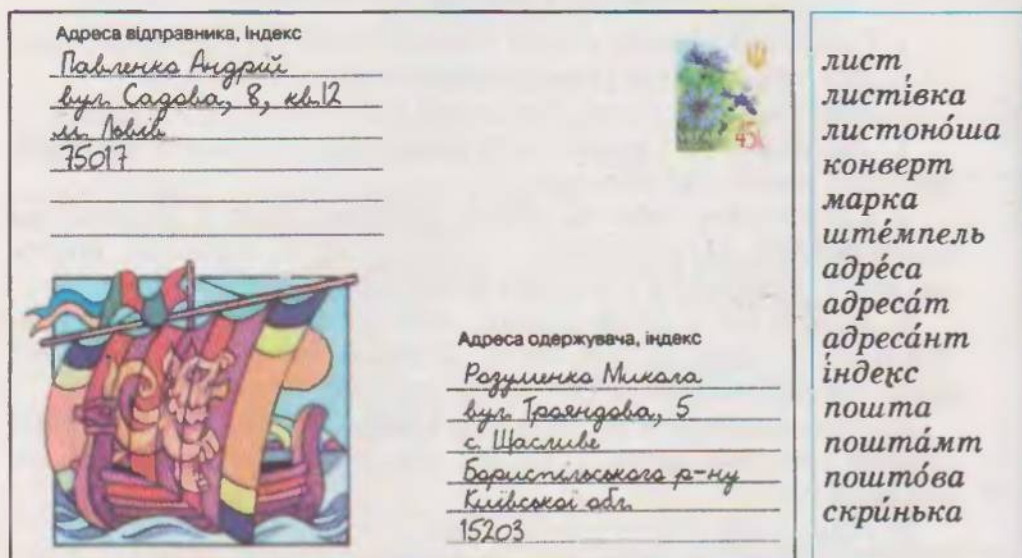 Адреса відправника, індекс
Павленко Андрій
вул. Садова, 8, кв.12
м. Львів
75017
45к
Адреса одержувача, індекс
Розуменко Микола
вул. Трояндова, 5
с. Щасливе
Бориспільського р-ну
Київської обл.
15203
лист
листі́вка
листоно́ша
конверт
марка
ште́мпель
адре́са
адреса́т
адреса́нт
і́ндекс
пошта
пошта́мт
пошто́ва
скри́нька